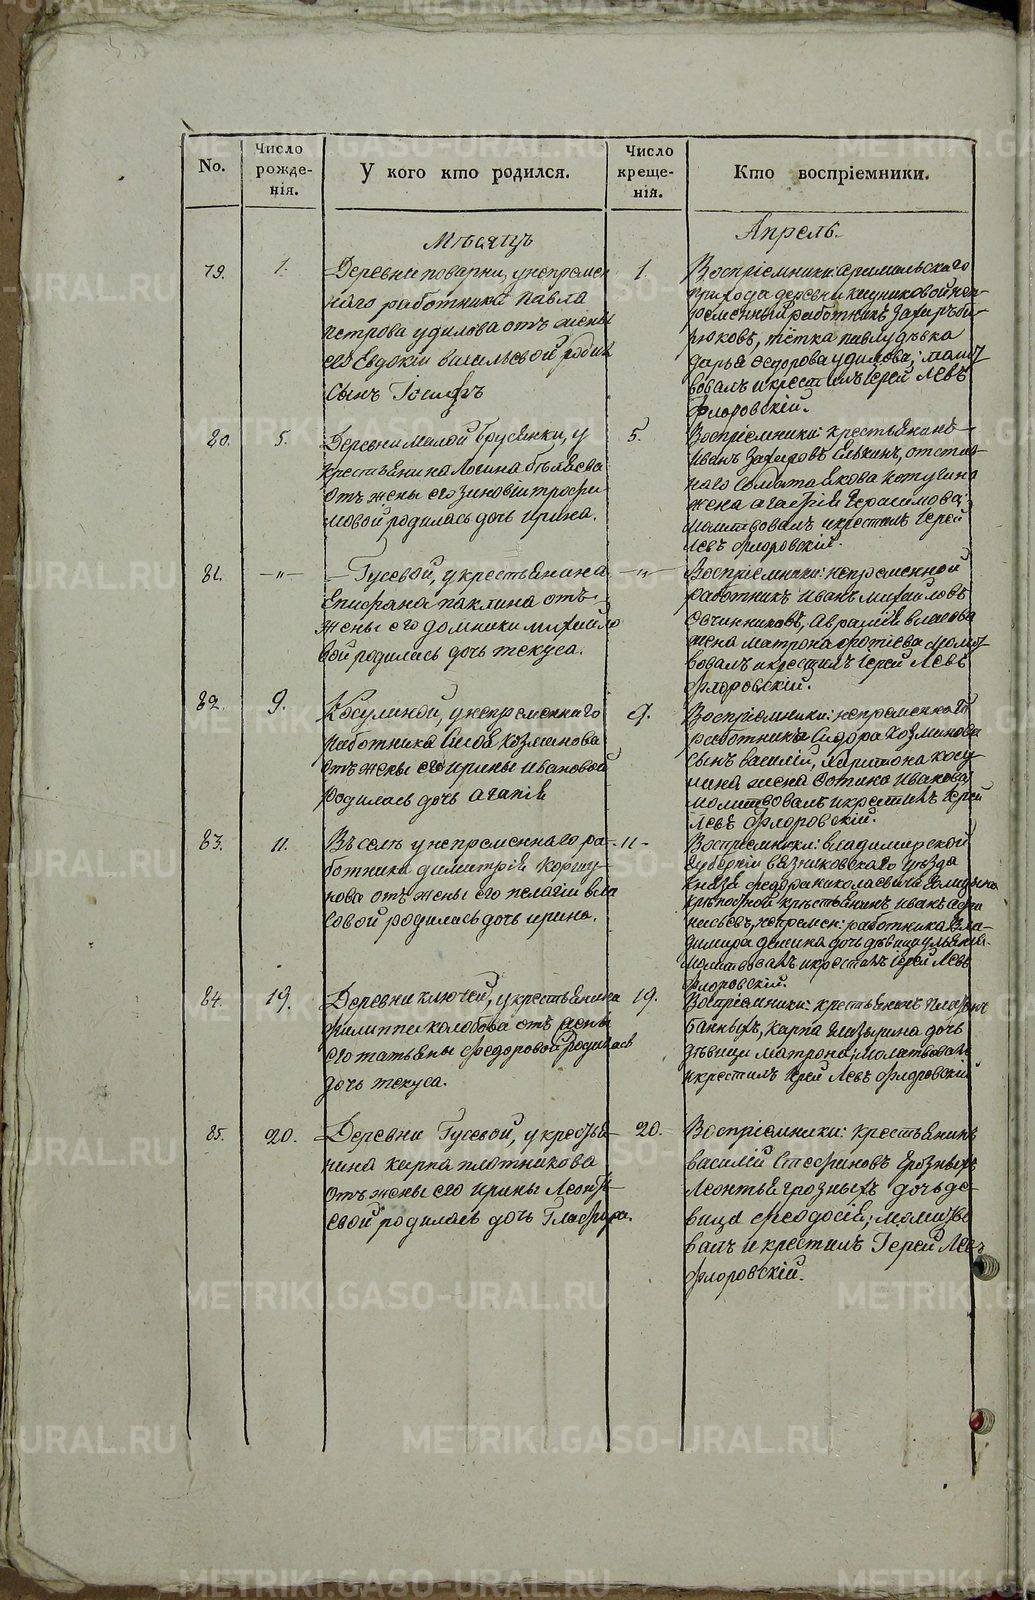 No.
Число рожде- нія.
У кого кто родился.
Число креще- нія.
Кто воспріемники.
Мѣсяцъ
Апрель.
79.
1.
Деревни поварни, у непремен
наго работника Павла
Петрова Удилова отъ жены
его Евдокіи Васильевой родил
сынъ Іосифъ
1.
Воспріемники: арамильскаго
прихода деревни
работникъ Захаръ Би-
рюковъ, тётка Павлу дѣвка
Дарья Федорова Удилова; молит
вовалъ и крестилъ Іерей Левъ
Флоровскій.
80.
5.
Деревни малой Брусянки, у
крестьянина Логина Бѣляева
отъ жены его Зиновіи Трофи
мовой родилась дочь Ирина.
5.
Воспріемники: крестьянинъ
Иванъ Захаровъ Елькинъ, отстав
наго солдата Якова
жена Агафія Герасимова;
молитвовалъ и крестилъ Іерей
Левъ Флоровскій.
81.
—„—
— Гусевой, у крестьянина
Епифана Паклина отъ
жены его Домники Михайло
вой родилась дочь Текуса.
—„—
Воспріемники: непременной
работникъ Иванъ Михайловъ
Овчинниковъ, Аврамія Власова
жена Матрона Фотіева молит
вовалъ и крестилъ Іерей Левъ
Флоровскій.
82.
9.
Косулиной, у непременнаго
работника Сисоя Козминова
отъ жены его Ирины Ивановой
родилась дочь Агапія
9.
Воспріемники: непременнаго
работника Сидора Козминова
сынъ Василій, Харитона Косу
лина жена Фотина Иванова,
молитвовалъ и крестилъ Іерей
Левъ Флоровскій.
83.
11.
Въ селѣ у непременнаго ра-
ботника Димитрія Коршу
нова отъ жены его Пелагіи Вла
совой родилась дочь Ирина.
-11-
Воспріемники: Владимирской
Губерніи Вязниковскаго уѣзда
Князя Федора Николаевича Голицына
крѣпостной крестьянинъ Иванъ Афа
насьевъ, непремен: работника Вла-
димира Демина дочь дѣвица Ульянія.
молитвовалъ и крестилъ Іерей Левъ
Флоровскій.
84.
19.
Деревни Ключей, у крестьянина
Филиппа Колобова отъ жены
его Татьяны Федоровой родилась
дочь Текуса.
19.
Воспріемники: крестьянинъ
Банныхъ, Карпа дочь
дѣвица Матрона; молитвовалъ
и крестилъ Іерей Левъ Флоровскій
85.
20.
Деревни Гусевой, у крестья-
нина Карпа Плотникова
отъ жены его Ирины Леонть-
евой родилась дочь Глафира.
20.
Воспріемники: крестьянинъ
Василій Стефановъ Грозныхъ
Леонтья Грозныхъ дочь де-
вица Феодосія; молитво
валъ и крестилъ Іерей Левъ
Флоровскій.
METRIKI.GASO-URAL.RU